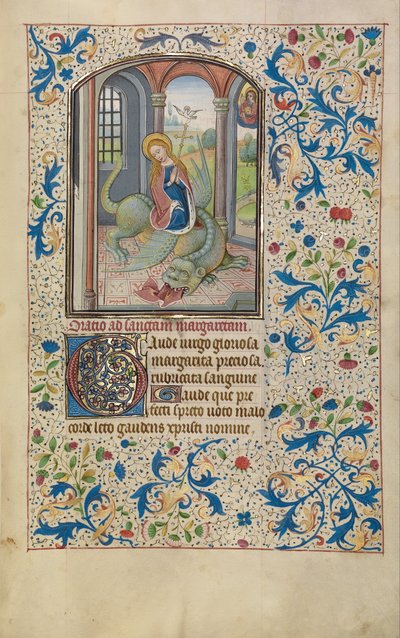 Oratio ad sanctam margaretam.
Gaude virgo gloriosa
margarita preciosa.
rubricata sanguine
Gaude que pre
fecti spreto voto maio
corde leto gaudens xpristi nomine.